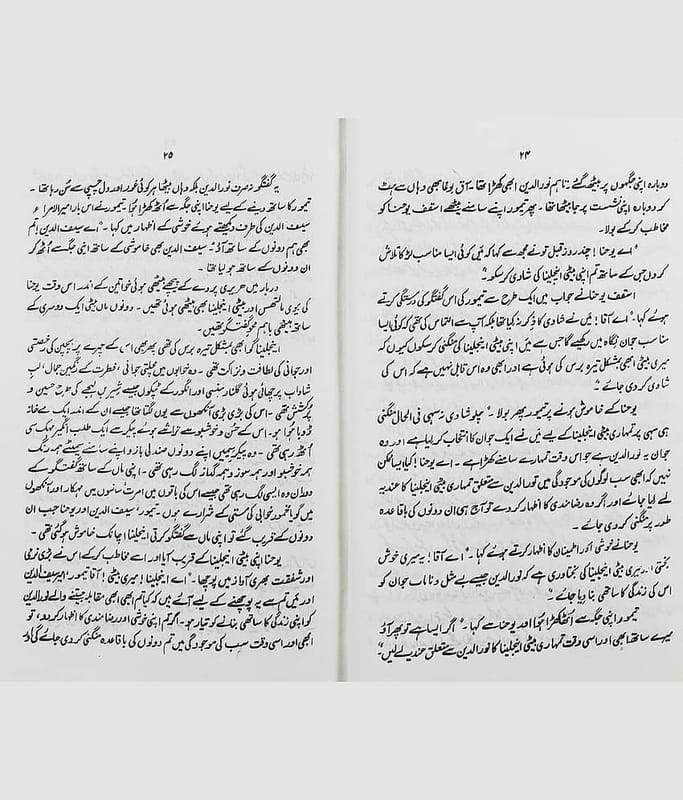 ۲۴
دوبارہ اپنی جگہوں پر بیٹھ گئے ۔ تاہم نورالدین ابھی کھڑا تھا ۔ آق بوغا بھی وہاں سے ہٹ
کر دوبارہ اپنی نشست پر جا بیٹھا تھا ۔ پھر تیمور اپنے سامنے بیٹھے اسقف یوحنا کو
مخاطب کر کے بولا ۔
"اے یوحنا ! چند روز قبل تو نے مجھ سے کہا کہ میں کوئی ایسا مناسب لڑکا تلاش
کر دوں جس کے ساتھ تم اپنی بیٹی اینجلینا کی شادی کر سکو ۔"
اسقف یوحنا نے جواب میں ایک طرح سے تیمور کی اس گفتگو کی درستگی کرتے
ہوئے کہا ۔ "اے آقا ! میں نے شادی کا ذکر نہ کیا تھا بلکہ آپ سے التماس کی تھی کہ کوئی ایسا
مناسب جوان نگاہ میں رکھیے گا جس سے میں اپنی بیٹی اینجلینا کی منگنی کر سکوں کیوں کہ
میری بیٹی ابھی بمشکل تیرہ برس کی ہوئی ہے اور ابھی وہ اس قابل نہیں ہے کہ اس کی
شادی کر دی جائے ۔"
یوحنا کے خاموش ہونے پر تیمور پھر بولا ۔ "چلو شادی نہ سہی فی الحال منگنی
ہی سہی پر تمہاری بیٹی اینجلینا کے لیے میں نے ایک جوان کا انتخاب کر لیا ہے اور وہ
جوان یہ نورالدین ہے جو اس وقت تمہارے سامنے کھڑا ہے ۔ اے یوحنا ! کیا ایسا ممکن
نہیں کہ ابھی سب لوگوں کی موجودگی میں نورالدین سے متعلق تمہاری بیٹی اینجلینا کا عندیہ
لے لیا جائے اور اگر وہ رضامندی کا اظہار کر دے تو آج ہی ان دونوں کی باقاعدہ
طور پر منگنی کر دی جائے ۔
یوحنا نے خوشی اور اطمینان کا اظہار کرتے ہوئے کہا ۔ "اے آقا ! یہ میری خوش
بختی ! ۔ میری بیٹی اینجلینا کی بختاوری ہے کہ نورالدین جیسے بے مثل و نایاب جوان کو
اس کی زندگی کا ساتھی بنا دیا جائے ۔"
تیمور اپنی جگہ سے اٹھ کھڑا ہوا اور یوحنا سے کہا ۔ "اگر ایسا ہے تو پھر آؤ
میرے ساتھ ابھی اور اسی وقت تمہاری بیٹی اینجلینا کا نورالدین سے متعلق عندیہ لے لیں ۔"
۲۵
یہ گفتگو نہ صرف نورالدین بلکہ وہاں بیٹھا ہر کوئی غور اور دل چسپی سے سن رہا تھا ۔
تیمور کا ساتھ دینے کے لیے یوحنا اپنی جگہ سے اُٹھ کھڑا ہوا ۔ تیمور نے اس بار امیر الامراء
سیف الدین کی طرف دیکھتے ہوئے خوشی کے اظہار میں کہا ۔ "اے سیف الدین ! تم
بھی ہم دونوں کے ساتھ آؤ ۔" سیف الدین بھی خاموشی کے ساتھ اپنی جگہ سے اُٹھ کر
ان دونوں کے ساتھ ہو لیا تھا ۔
دربار میں حریری پردے کے پیچھے بیٹھی ہوئی خواتین کے اندر اس وقت یوحنا
کی بیوی مالتھس اور بیٹی اینجلینا بھی بیٹھی ہوئی تھیں ۔ دونوں ماں بیٹی ایک دوسری کے
ساتھ بیٹھی باہم محو گفتگو تھیں ۔
اینجلینا گو ابھی بمشکل تیرہ برس کی تھی پھر بھی اس کے چہرے پر بچپن کی رخصتی
اور جوانی کی لطافت و نزاکت تھی ۔ وہ خوابوں میں پلتی جوانی ، فطرت کے نگین جمال ، لبِ
شاداب پر چھائی ہوئی گلنار ہنسی اور انگور کے ٹپکوں جیسے شیریں لہجے کی طرح حسین و
پُرکشش تھی ۔ اس کی بڑی بڑی آنکھوں سے یوں لگتا تھا جیسے ان کے اندر ایک مے خانہ
ڈوبا ہوا ہو ۔ اس کے حُسن و خوشبو سے تراشے ہوئے پیکر سے ایک طلب انگیز مہک سی
اُٹھ رہی تھی ۔ وہ پیکرِ سیمیں اپنے دونوں صندلی بازو اپنے سامنے سمیٹے ہمہ رنگ
ہمہ خوشبو اور ہمہ سوز و ہمہ گمانہ لگ رہی تھی ۔ اپنی ماں کے ساتھ گفتگو کے
دوران وہ ایسی لگ رہی تھی جیسے اس کی باتوں میں امرت سانسوں میں مہکار اور آنکھوں
میں گویا مخمور نیم خوابی کی مستی کے شرارے ہوں ۔ تیمور ، سیف الدین اور یوحنا جب ان
دونوں کے قریب گئے تو اپنی ماں سے گفتگو کرتی اینجلینا اچانک خاموش ہو گئی تھی ۔
یوحنا اپنی بیٹی اینجلینا کے قریب آیا اور اسے مخاطب کر کے اس نے بڑی نرمی
اور شفقت بھری آواز میں پوچھا ۔ "اے اینجلینا ! میری بیٹی ! آقا تیمور امیر سیف الدین
اور میں تم سے یہ پوچھنے کے لیے آئے ہیں کہ کیا تم ابھی ابھی مقابلہ جیتنے والے نورالدین
کو اپنی زندگی کا ساتھی بنانے کو تیار ہو ۔ اگر تم اپنی خوشی اور رضامندی کا اظہار کر دو ، تو
ابھی اور اسی وقت سب کی موجودگی میں تم دونوں کی باقاعدہ منگنی کر دی جائے گی اور